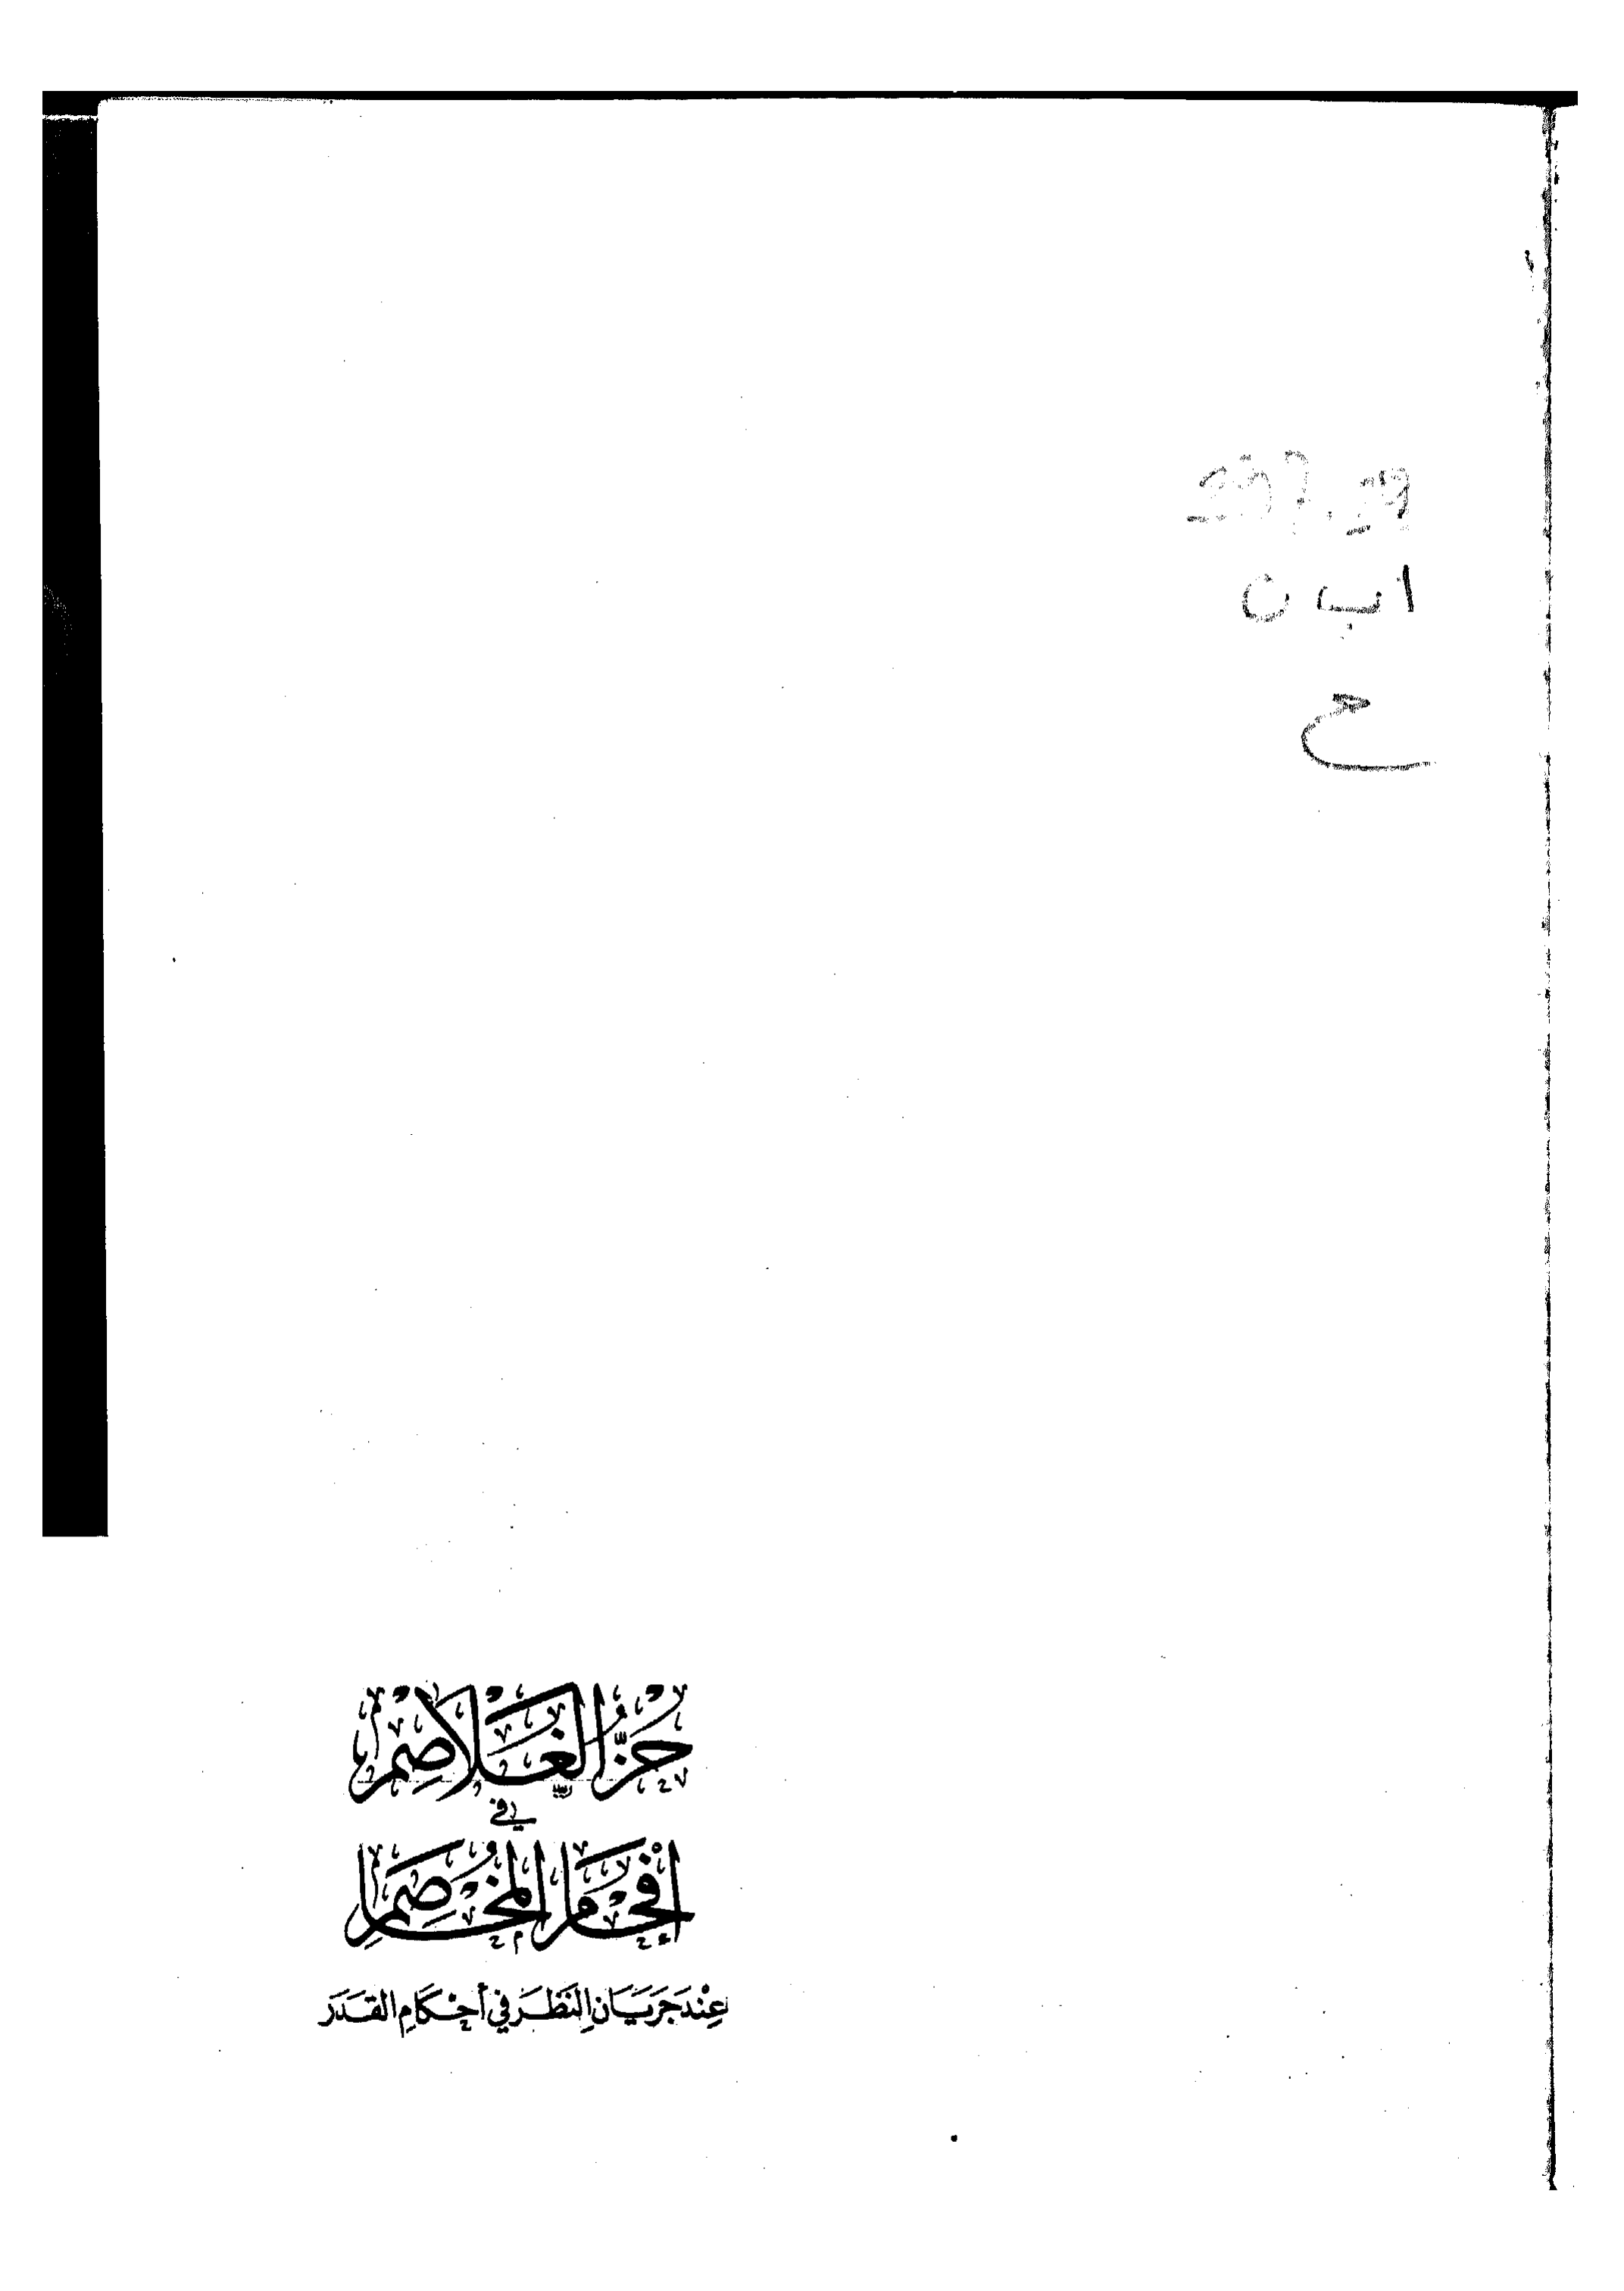 297.29
ا ب ن
ح
حَزُّ الغَلَاصِمْ
في
إفْحَامِ المُخَاصِمِ
عِنْدَ جَرَيَانِ النَظَرِ في أَحْكَامِ القَدَرِ